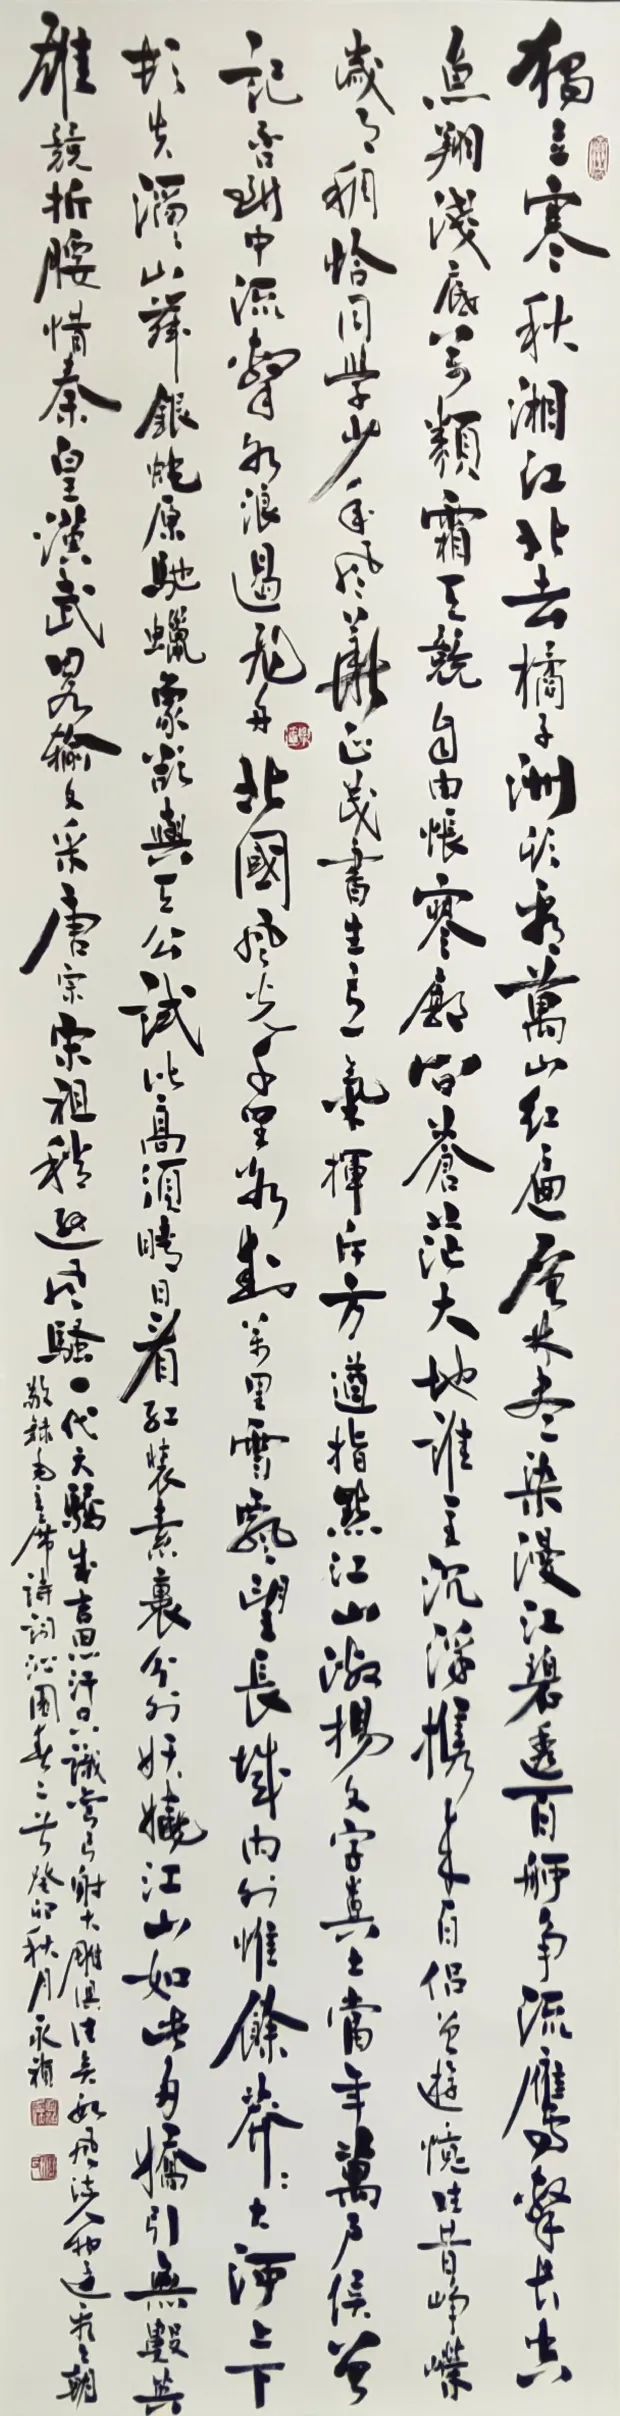 獨立寒秋湘江北去橘子洲頭看萬山紅遍層林盡染漫江碧透百舸爭流鷹擊長空
魚翔淺底萬類霜天競自由悵寥廓問蒼茫大地誰主沉浮攜來百侶曾遊憶往昔崢嶸
歲月稠恰同學少年風華正茂書生意氣揮斥方遒指點江山激揚文字糞土當年萬戶侯曾
記否到中流擊水浪遏飛舟北國風光千里冰封萬里雪飄望長城內外惟餘莽莽大河上下
頓失滔滔山舞銀蛇原馳蠟象欲與天公試比高須晴日看紅裝素裹分外妖嬈江山如此多嬌引無數英
雄競折腰惜秦皇漢武略輸文采唐宗宋祖稍遜風騷一代天驕成吉思汗只識彎弓射大雕俱往矣數風流人物還看今朝
敬録毛主席詩詞沁園春二首癸卯秋月永禎